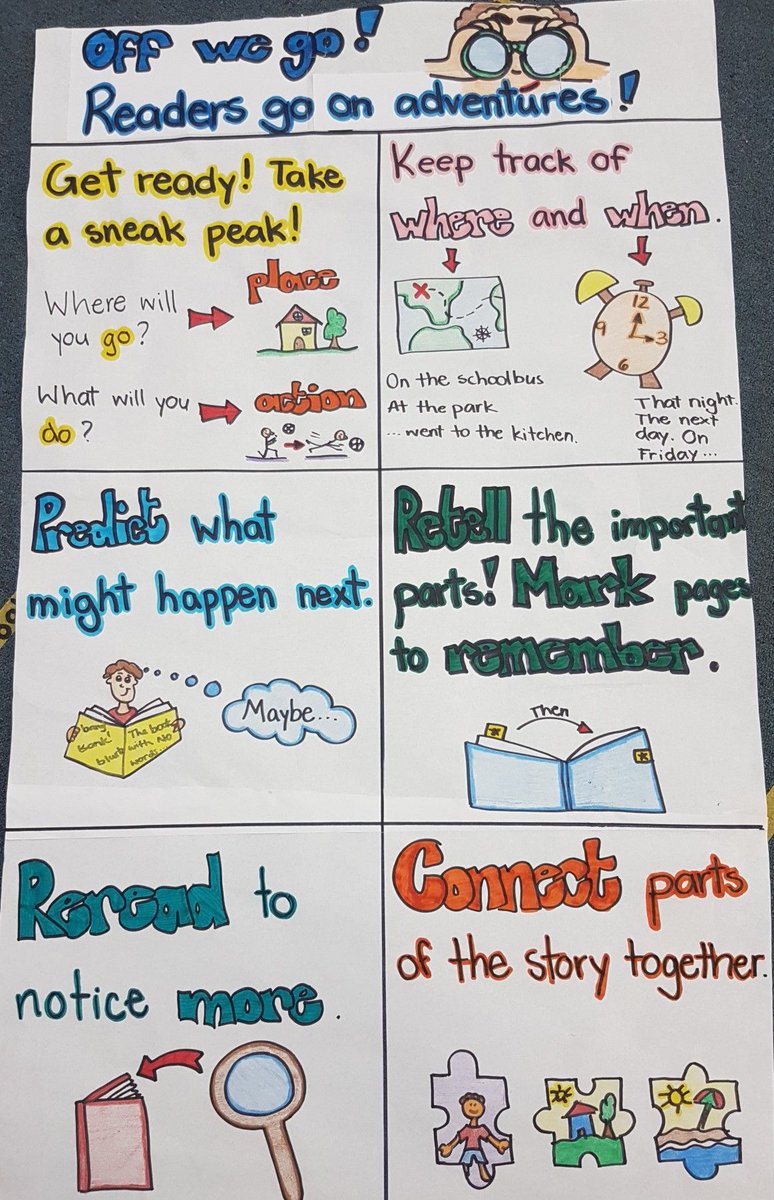 Off we go!
Readers go on adventures!
Get ready! Take
a sneak peak!
Where will
you go?
place
What will you
do?
action
Keep track of
where and when.
12
3
6
9
On the schoolbus
At the park
...went to the kitchen.
That night.
The next
day. On
Friday...
Predict what
might happen next.
Maybe...
bong!
Bonk!
blurb
The book
with No
words...
Retell the important
parts! Mark pages
to remember.
Then
Reread to
notice more.
Connect parts
of the story together.